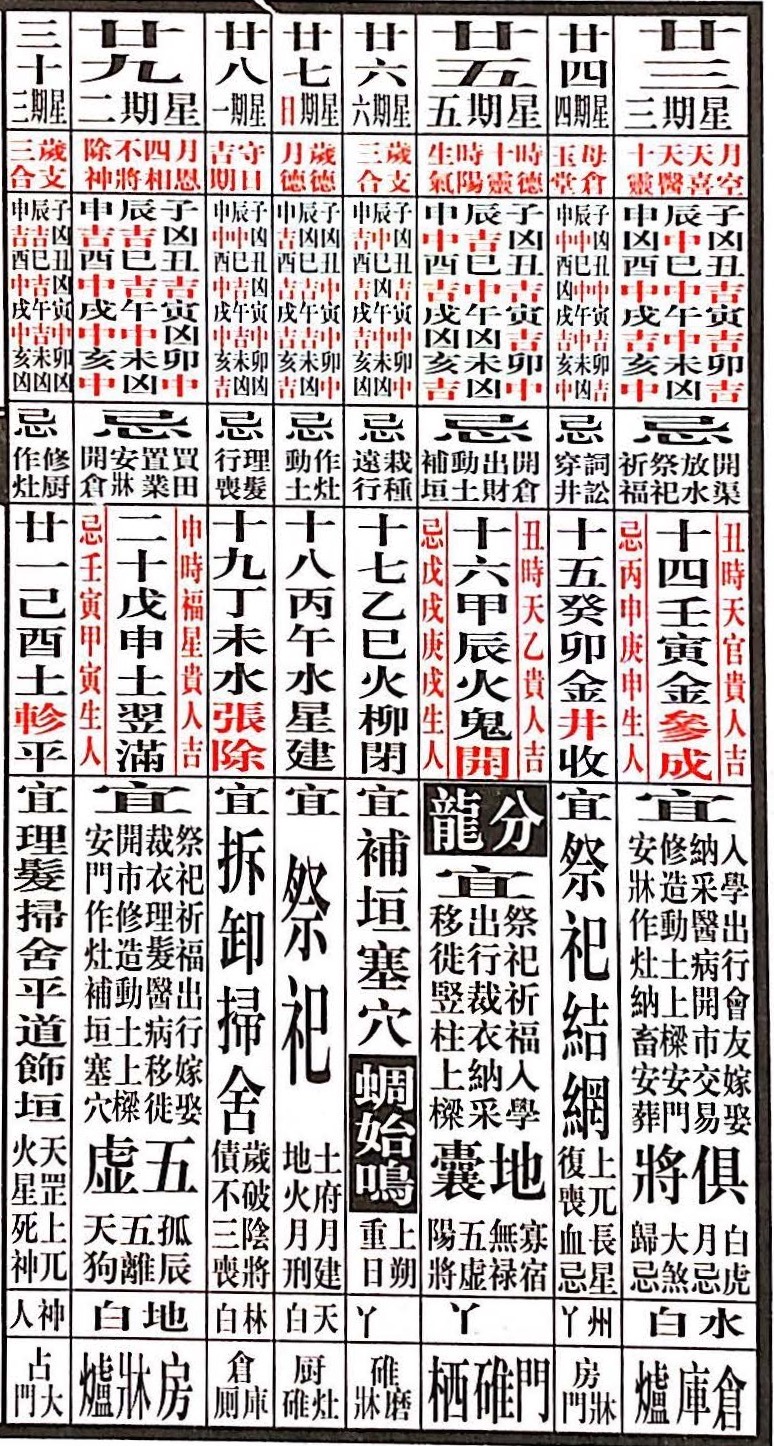 廿三
星期三
月空
天喜
天醫
十靈
子凶丑吉寅吉卯吉
辰中巳中午中未凶
申凶酉中戌吉亥中
忌
開渠
放水
祭祀
祈福
丑時天官貴人吉
十四壬寅金參成
忌丙申庚申生人
宜
入學出行會友嫁娶
納采醫病開市交易
修造動土上樑安門
安牀作灶納畜安葬
俱將
白虎
月忌
大煞
歸忌
水白
倉庫爐
廿四
星期四
母倉
玉堂
子凶丑中寅吉卯吉
辰中巳中午中未凶
申中酉凶戌吉亥中
忌
詞訟
穿井
十五癸卯金井收
宜
祭祀結網
上兀長星
復喪血忌
州丫
房牀門
廿五
星期五
時德
十靈
時陽
生氣
子凶丑吉寅吉卯中
辰吉巳中午凶未凶
申中酉吉戌凶亥吉
忌
開倉
出財
動土
補垣
丑時天乙貴人吉
十六甲辰火鬼開
忌戊戌庚戌生人
分龍
宜
祭祀祈福入學
出行裁衣納采
移徙豎柱上樑
地囊
寡宿
無祿
五虛
陽將
丫
門碓栖
廿六
星期六
歲支
三合
子凶丑吉寅中卯中
辰中巳吉午中未凶
申吉酉凶戌吉亥凶
忌
栽種
遠行
十七乙巳火柳閉
宜
補垣塞穴
蜩始鳴
上朔
重日
丫
碓磨牀
廿七
星期日
歲德
月德
子凶丑中寅中卯中
辰凶巳吉午吉未凶
申吉酉吉戌吉亥吉
忌
作灶
動土
十八丙午水星建
宜
祭祀
土府月建
地火月刑
天白
厨灶碓
廿八
星期一
守日
吉期
子凶丑凶寅中卯凶
辰中巳吉午吉未凶
申中酉中戌中亥吉
忌
理髮
行喪
十九丁未水張除
宜
拆卸掃舍
歲破陰將
債不三喪
林白
倉庫厠
廿九
星期二
月恩
四相
不將
除神
子凶丑吉寅凶卯中
辰吉巳吉午中未凶
申吉酉中戌中亥中
忌
買田
置業
安牀
開倉
申時福星貴人吉
二十戊申土翌滿
忌壬寅甲寅生人
宜
祭祀祈福出行嫁娶
裁衣理髮醫病移徙
開市修造動土上樑
安門作灶補垣塞穴
五虛
孤辰
五離
天狗
地白
房牀爐
三十
星期三
歲支
三合
子凶丑凶寅中卯凶
辰吉巳吉午吉未凶
申吉酉中戌中亥凶
忌
修厨
作灶
廿一己酉土軫平
宜
理髮掃舍平道飾垣
天罡上兀
火星死神
神人
大門占